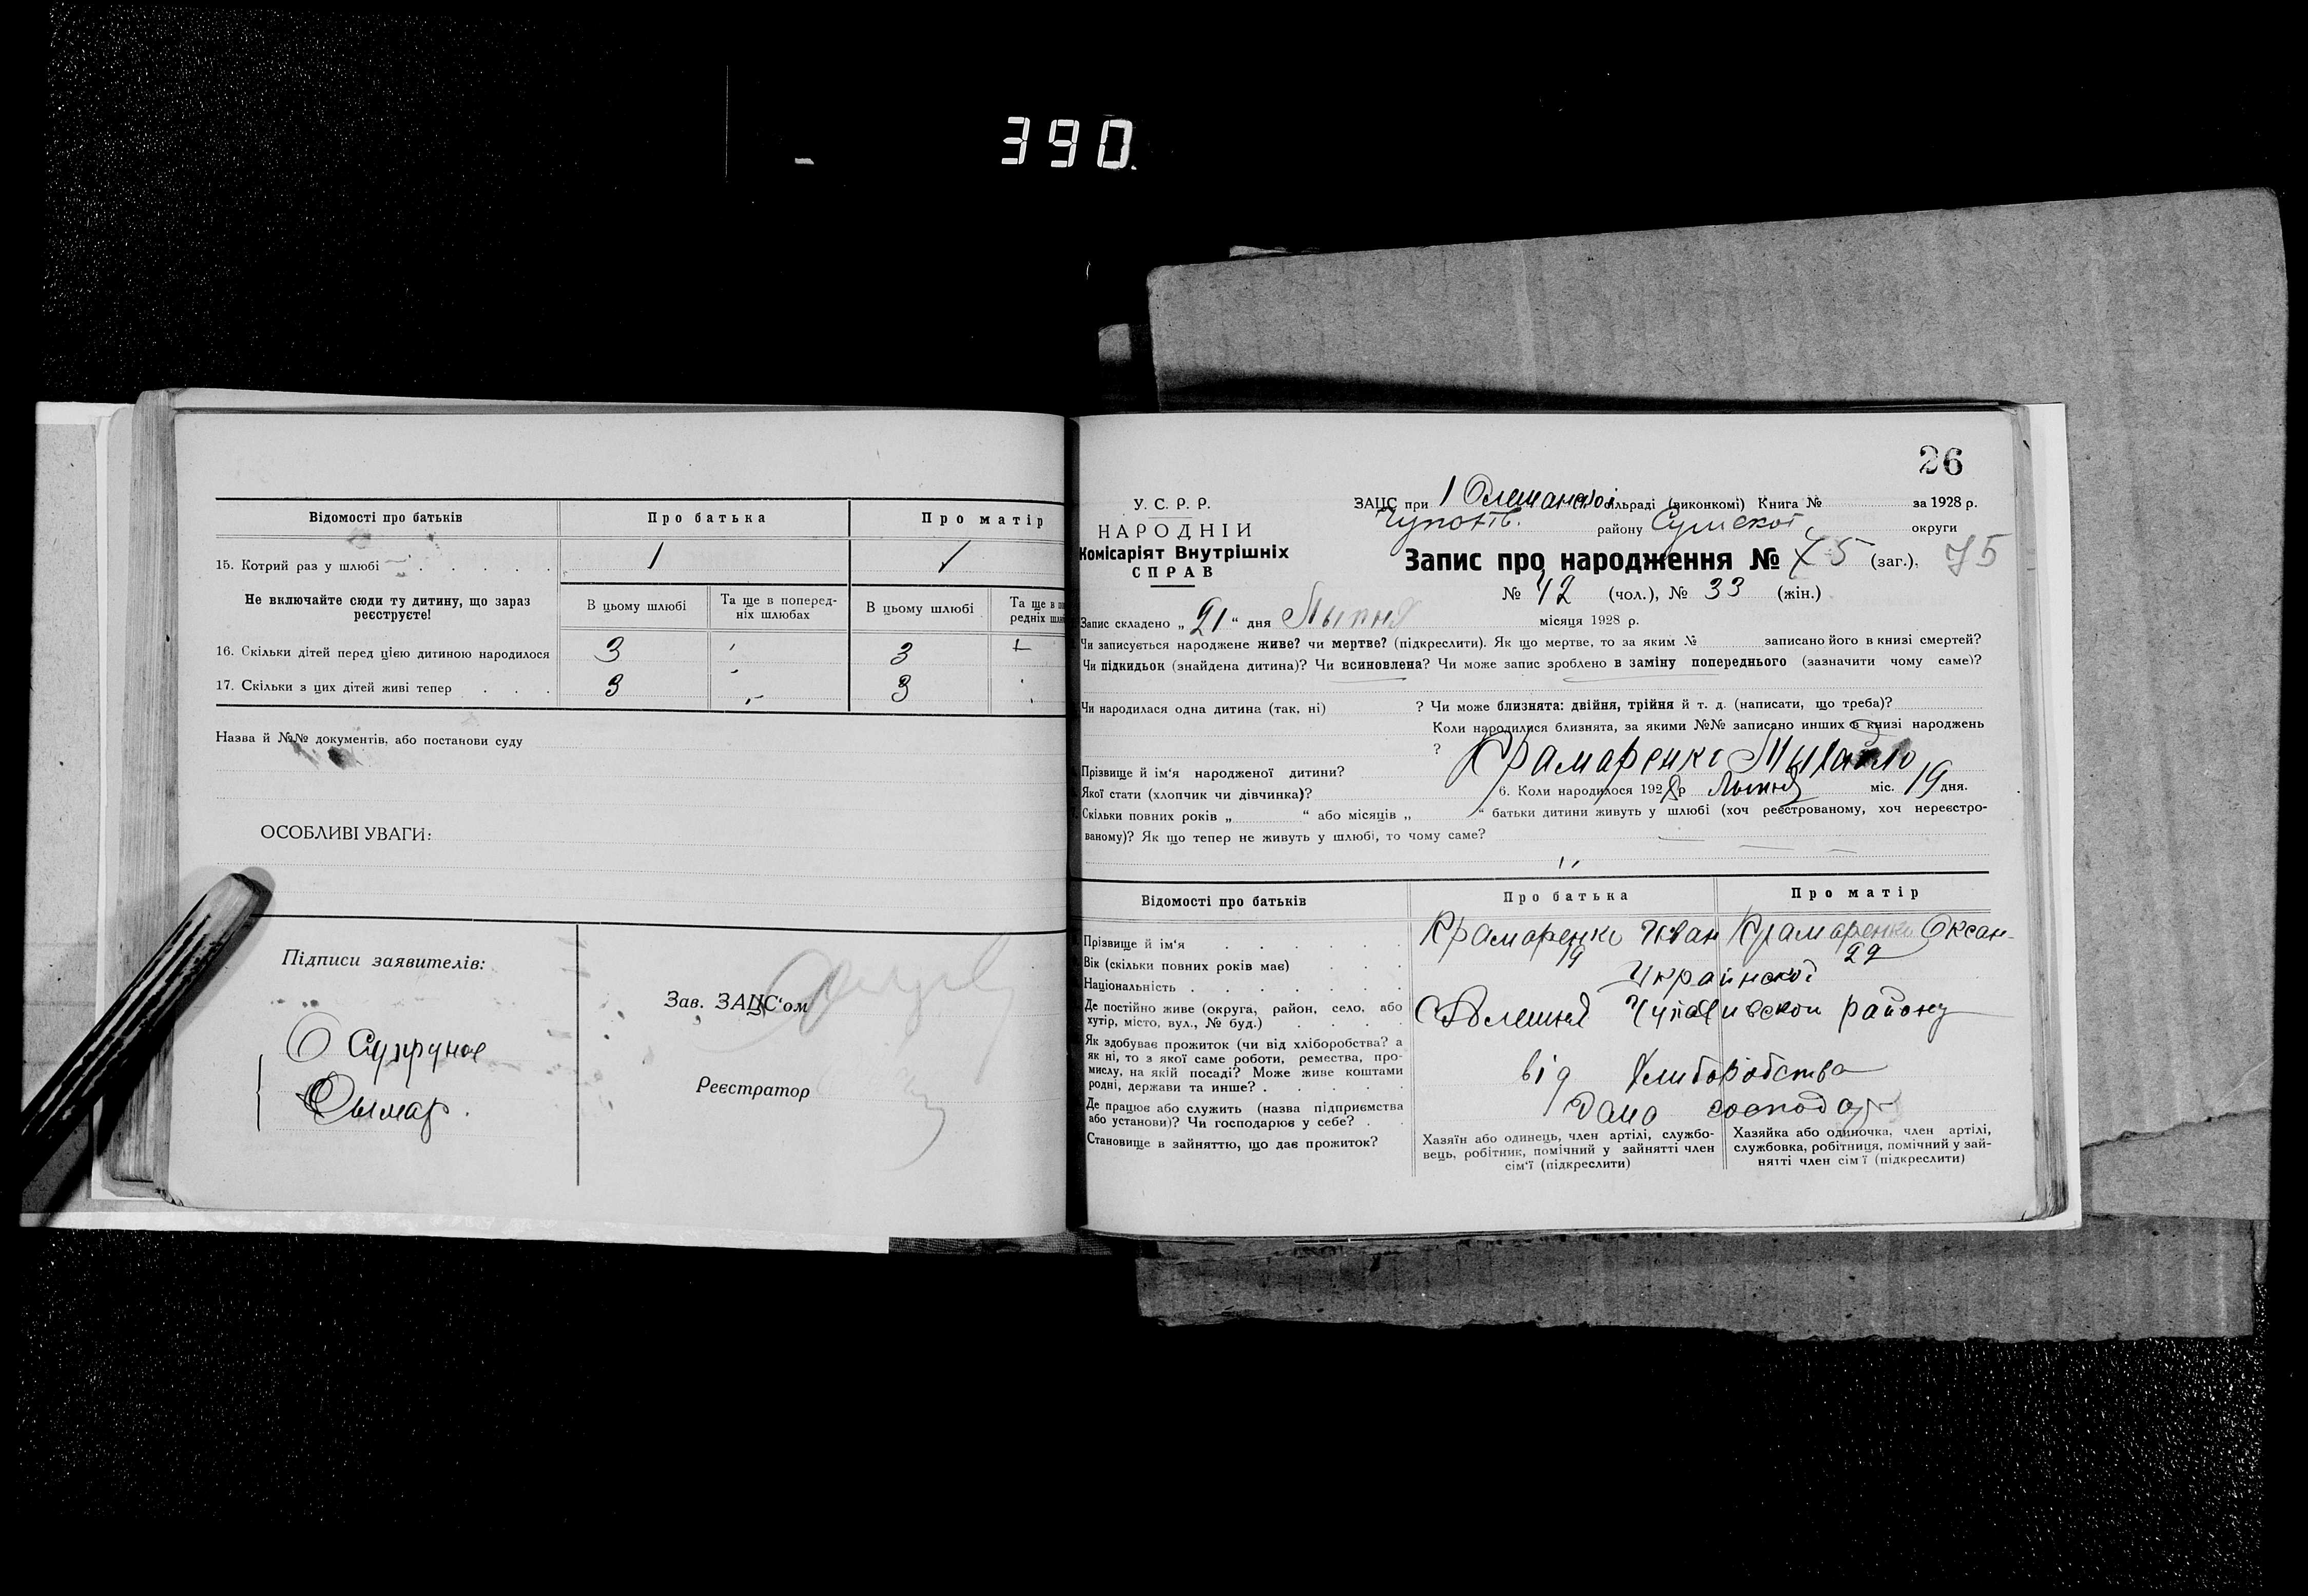 390.
Відомості про батьків
Про батька
Про матір
15. Котрий раз у шлюбі
1
1
Не включайте сюди ту дитину, що зараз
реєструєте!
В цьому шлюбі
Та ще в поперед-
ніх шлюбах
В цьому шлюбі
Та ще в по
редніх шлю
16. Скільки дітей перед цією дитиною народилося
3
3
17. Скільки з цих дітей живі тепер
3
3
Назва й №№ документів, або постанови суду
ОСОБЛИВІ УВАГИ:
Підписи заявителів:
О Супрунов
Зав. ЗАЦС'ом
Реєстратор
26
У. С. Р. Р.
НАРОДНІЙ
Комісаріят Внутрішніх
СПРАВ
ЗАЦС при 1 Олешанської сільраді (виконкомі) Книга № за 1928 р.
району Сумської округи
Запис про народження № 75 (заг.), 75
№ 42 (чол.), № 33 (жін.)
Запис складено „ 21 “ дня Лыпня місяця 1928 р.
Чи записується народжене живе? чи мертве? (підкреслити). Як що мертве, то за яким № записано його в книзі смертей?
Чи підкидьок (знайдена дитина)? Чи всиновлена? Чи може запис зроблено в заміну попереднього (зазначити чому саме)?
Чи народилася одна дитина (так, ні) ? Чи може близнята: двійня, трійня й т. д. (написати, що треба)?
Коли народилися близнята, за якими №№ записано инших в книзі народжень
?
Прізвище й ім'я народженої дитини? Крамаренко Мыхайло
Якої стати (хлопчик чи дівчинка)? 6. Коли народилося 1928 р Лыпня міс. 19 дня.
Скільки повних років „ “ або місяців „ “ батьки дитини живуть у шлюбі (хоч реєстрованому, хоч нереєстро-
ваному)? Як що тепер не живуть у шлюбі, то чому саме?
Відомості про батьків
Про батька
Про матір
Прізвище й ім'я
Крамаренко Иван
Крамаренко Оксан-
Вік (скільки повних років має)
29
Національність
Украинской
Де постійно живе (округа, район, село, або
хутір, місто, вул., № буд.)
району
Як здобуває прожиток (чи від хліборобства? а
як ні, то з якої саме роботи, ремества, про-
мислу, на якій посаді? Може живе коштами
родні, держави та инше?
від Хлиборобства
Де працює або служить (назва підприємства
або установи)? Чи господарює у себе?
Становище в зайняттю, що дає прожиток?
Хазяїн або одинець, член артілі, службо-
вець, робітник, помічний у зайнятті член
сім'ї (підкреслити)
Хазяйка або одиночка, член артілі,
службовка, робітниця, помічний у зай-
нятті член сім'ї (підкреслити)